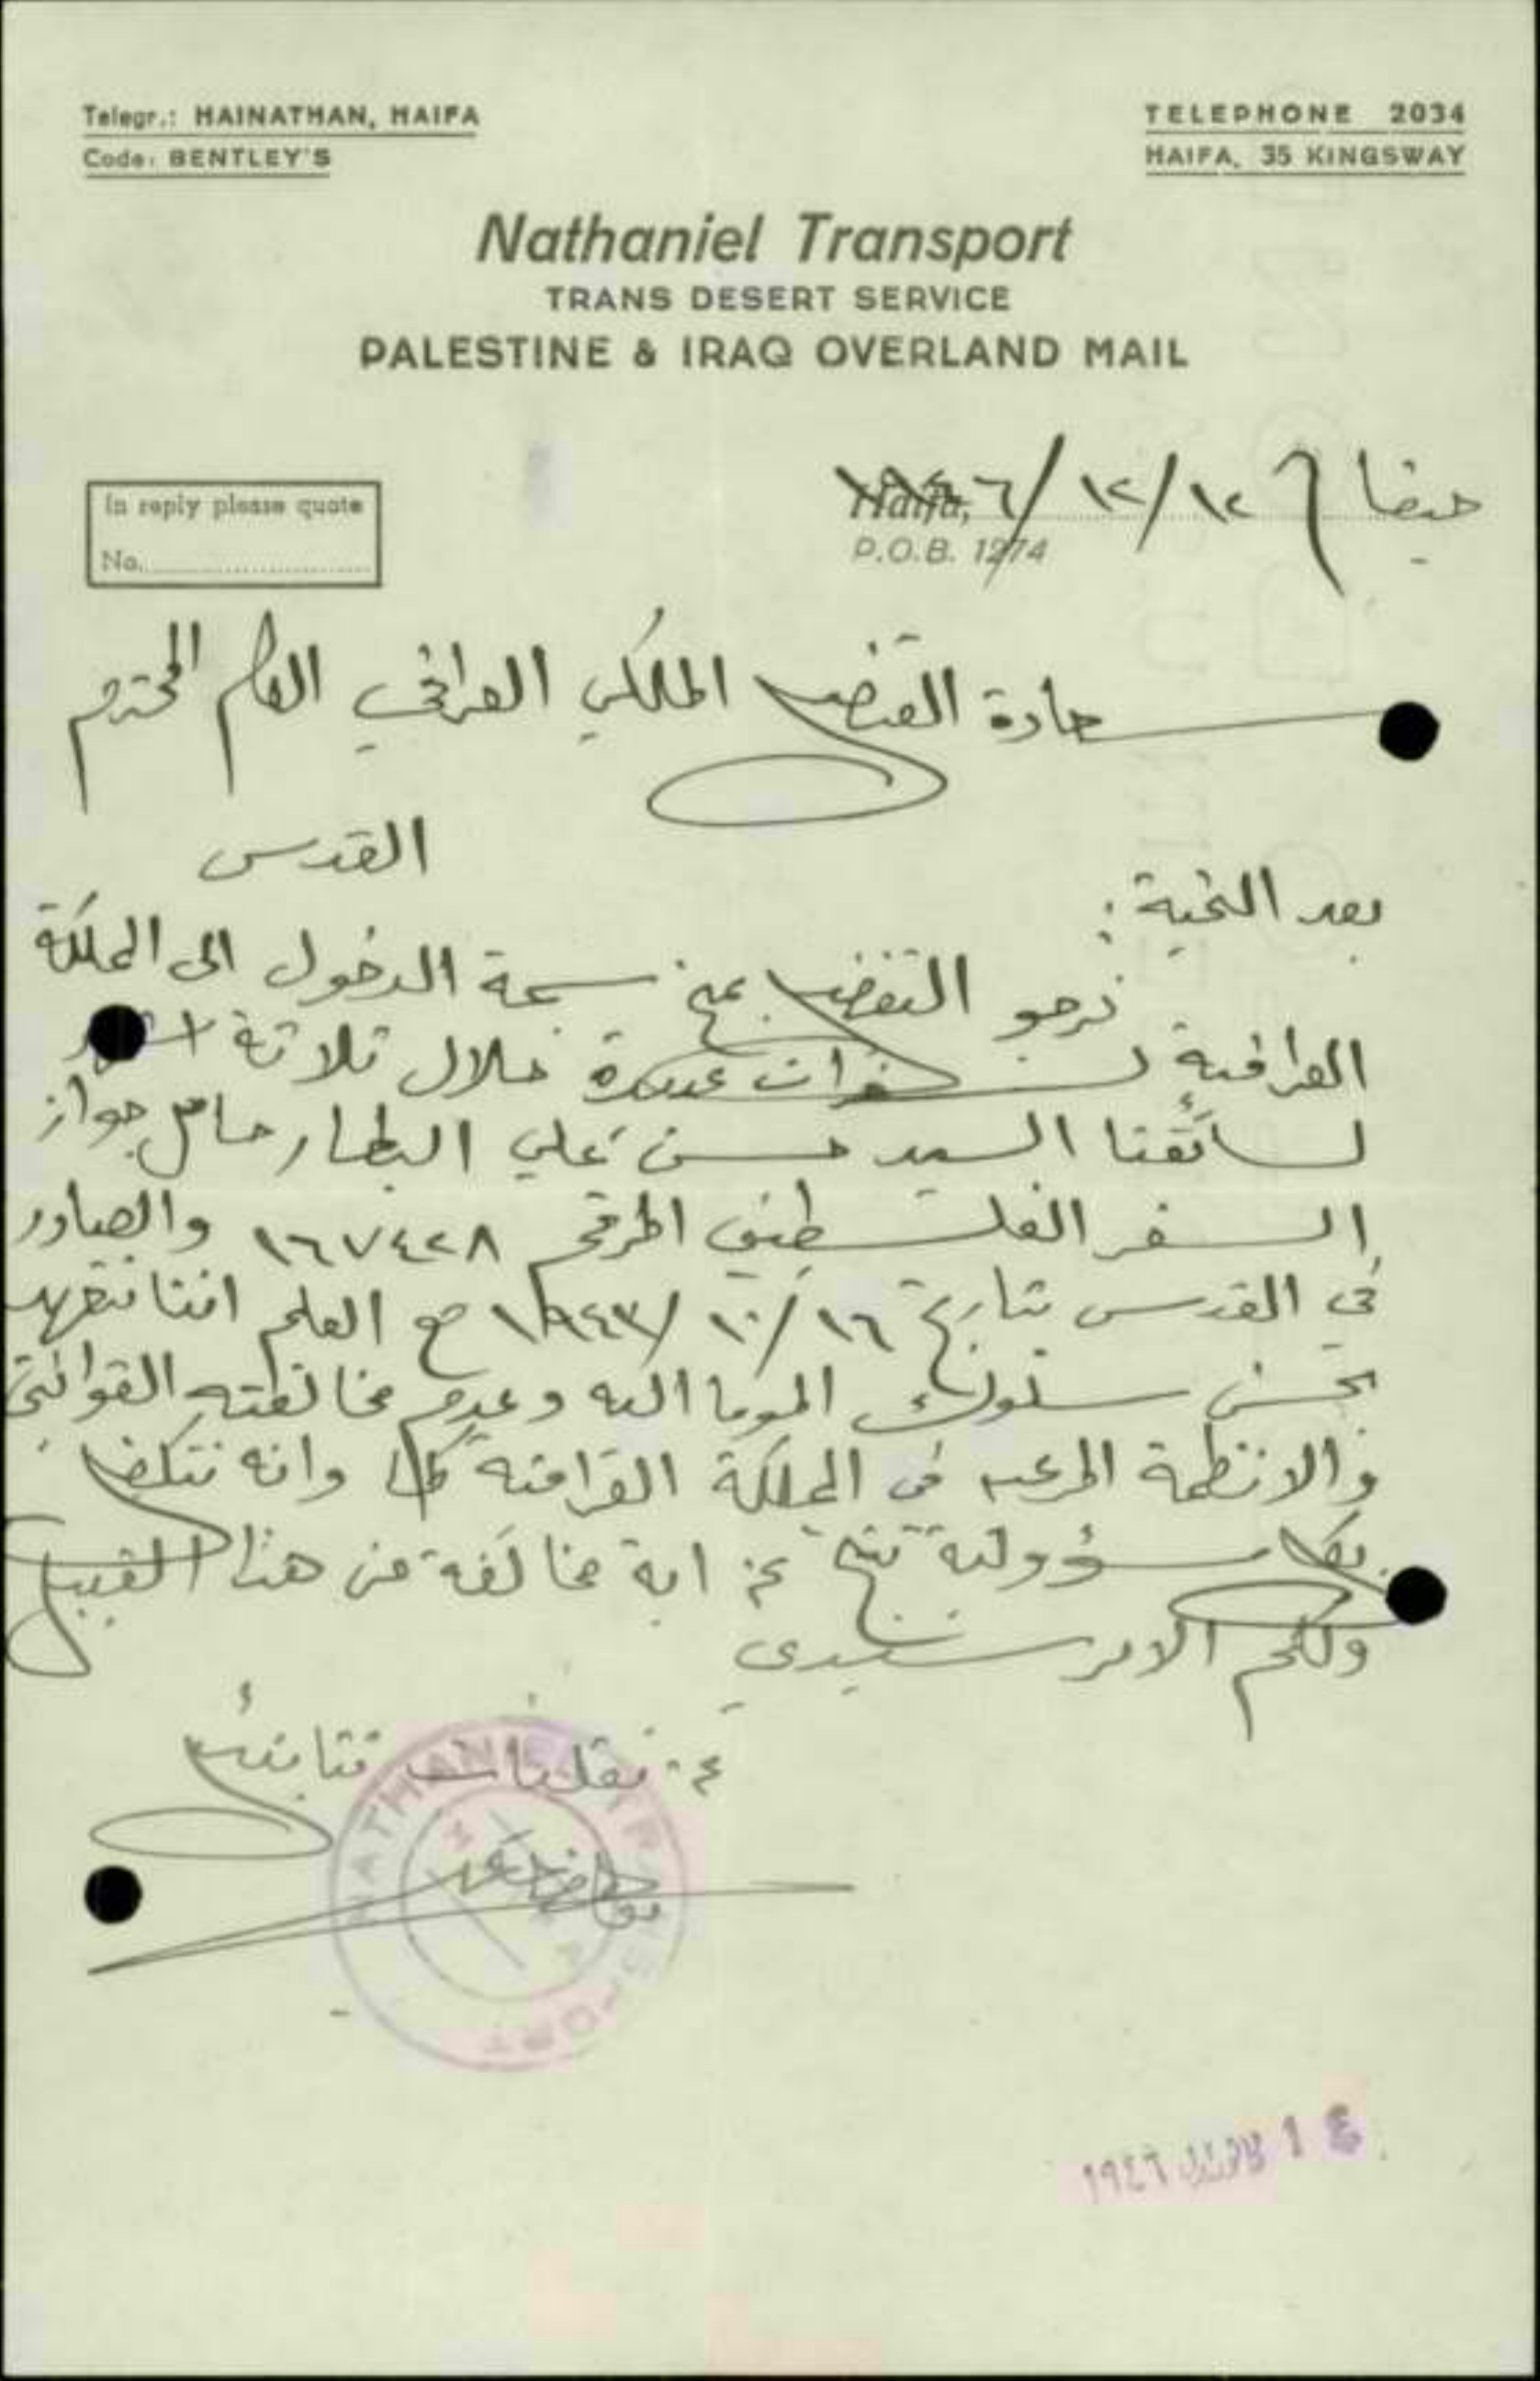 Telegr.: HAINATHAN, HAIFA
Code: BENTLEY'S
TELEPHONE 2034
HAIFA, 35 KINGSWAY
Nathaniel Transport
TRANS DESERT SERVICE
PALESTINE & IRAQ OVERLAND MAIL
In reply please quote
No.
Haifa,
P.O.B. 1274
حيفا في ١٢/١٢/١٩٤٦
سعادة القنصل الملكي العراقي العام المحترم
القدس
بعد التحية:
نرجو التفضل بمنح سمة الدخول الى المملكة
العراقية لسفرات عديدة خلال ثلاثة اشهر
لسائقنا السيد حسن علي البطار حامل جواز
السفر الفلسطيني المرقم ١٦٧٤٢٨ والصادر
في القدس بتاريخ ١٦/١٠/١٩٤٣ مع العلم اننا نتعهد
بحسن سلوك الموما اليه وعدم مخالفته القوانين
والانظمة المرعيه في المملكة العراقية كما وانه نتكفل
بكل مسؤولية تنتج عن اية مخالفة من هذا القبيل
ولكم الامر سيدي
ع. نقليات نتانئيل
NATHANIEL TRANSPORT